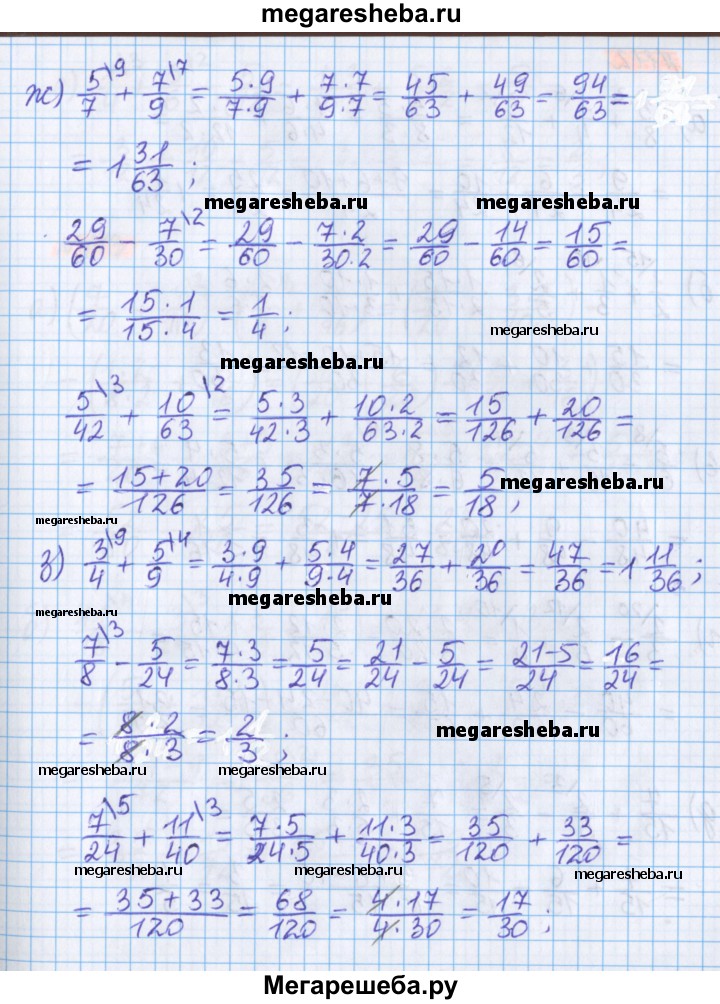 megaresheba.ru
ж) 5/7\9 + 7/9\7 = 5·9/7·9 + 7·7/9·7 = 45/63 + 49/63 = 94/63 =
= 1 31/63 ;
megaresheba.ru megaresheba.ru
29/60 - 7/30\2 = 29/60 - 7·2/30·2 = 29/60 - 14/60 = 15/60 =
= 15·1/15·4 = 1/4 ;
megaresheba.ru
megaresheba.ru
5/42\3 + 10/63\2 = 5·3/42·3 + 10·2/63·2 = 15/126 + 20/126 =
= 15+20/126 = 35/126 = 7·5/7·18 = 5/18 ;
megaresheba.ru
megaresheba.ru
з) 3/4\9 + 5/9\4 = 3·9/4·9 + 5·4/9·4 = 27/36 + 20/36 = 47/36 = 1 11/36 ;
megaresheba.ru
megaresheba.ru
7/8\3 - 5/24 = 7·3/8·3 = 5/24 = 21/24 - 5/24 = 21-5/24 = 16/24 =
= 8·2/8·3 = 2/3 ;
megaresheba.ru
megaresheba.ru megaresheba.ru
7/24\5 + 11/40\3 = 7·5/24·5 + 11·3/40·3 = 35/120 + 33/120 =
megaresheba.ru megaresheba.ru megaresheba.ru
= 35+33/120 = 68/120 = 4·17/4·30 = 17/30 ;
Мегарешеба.ру